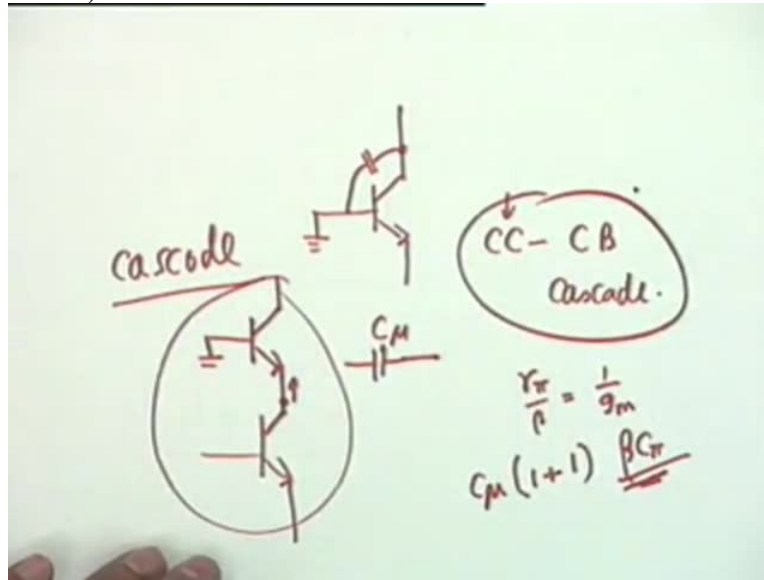 cascode
CC - CB
Cascade.
Cμ
rπ/β = 1/gm
Cμ(1+1) βCπ